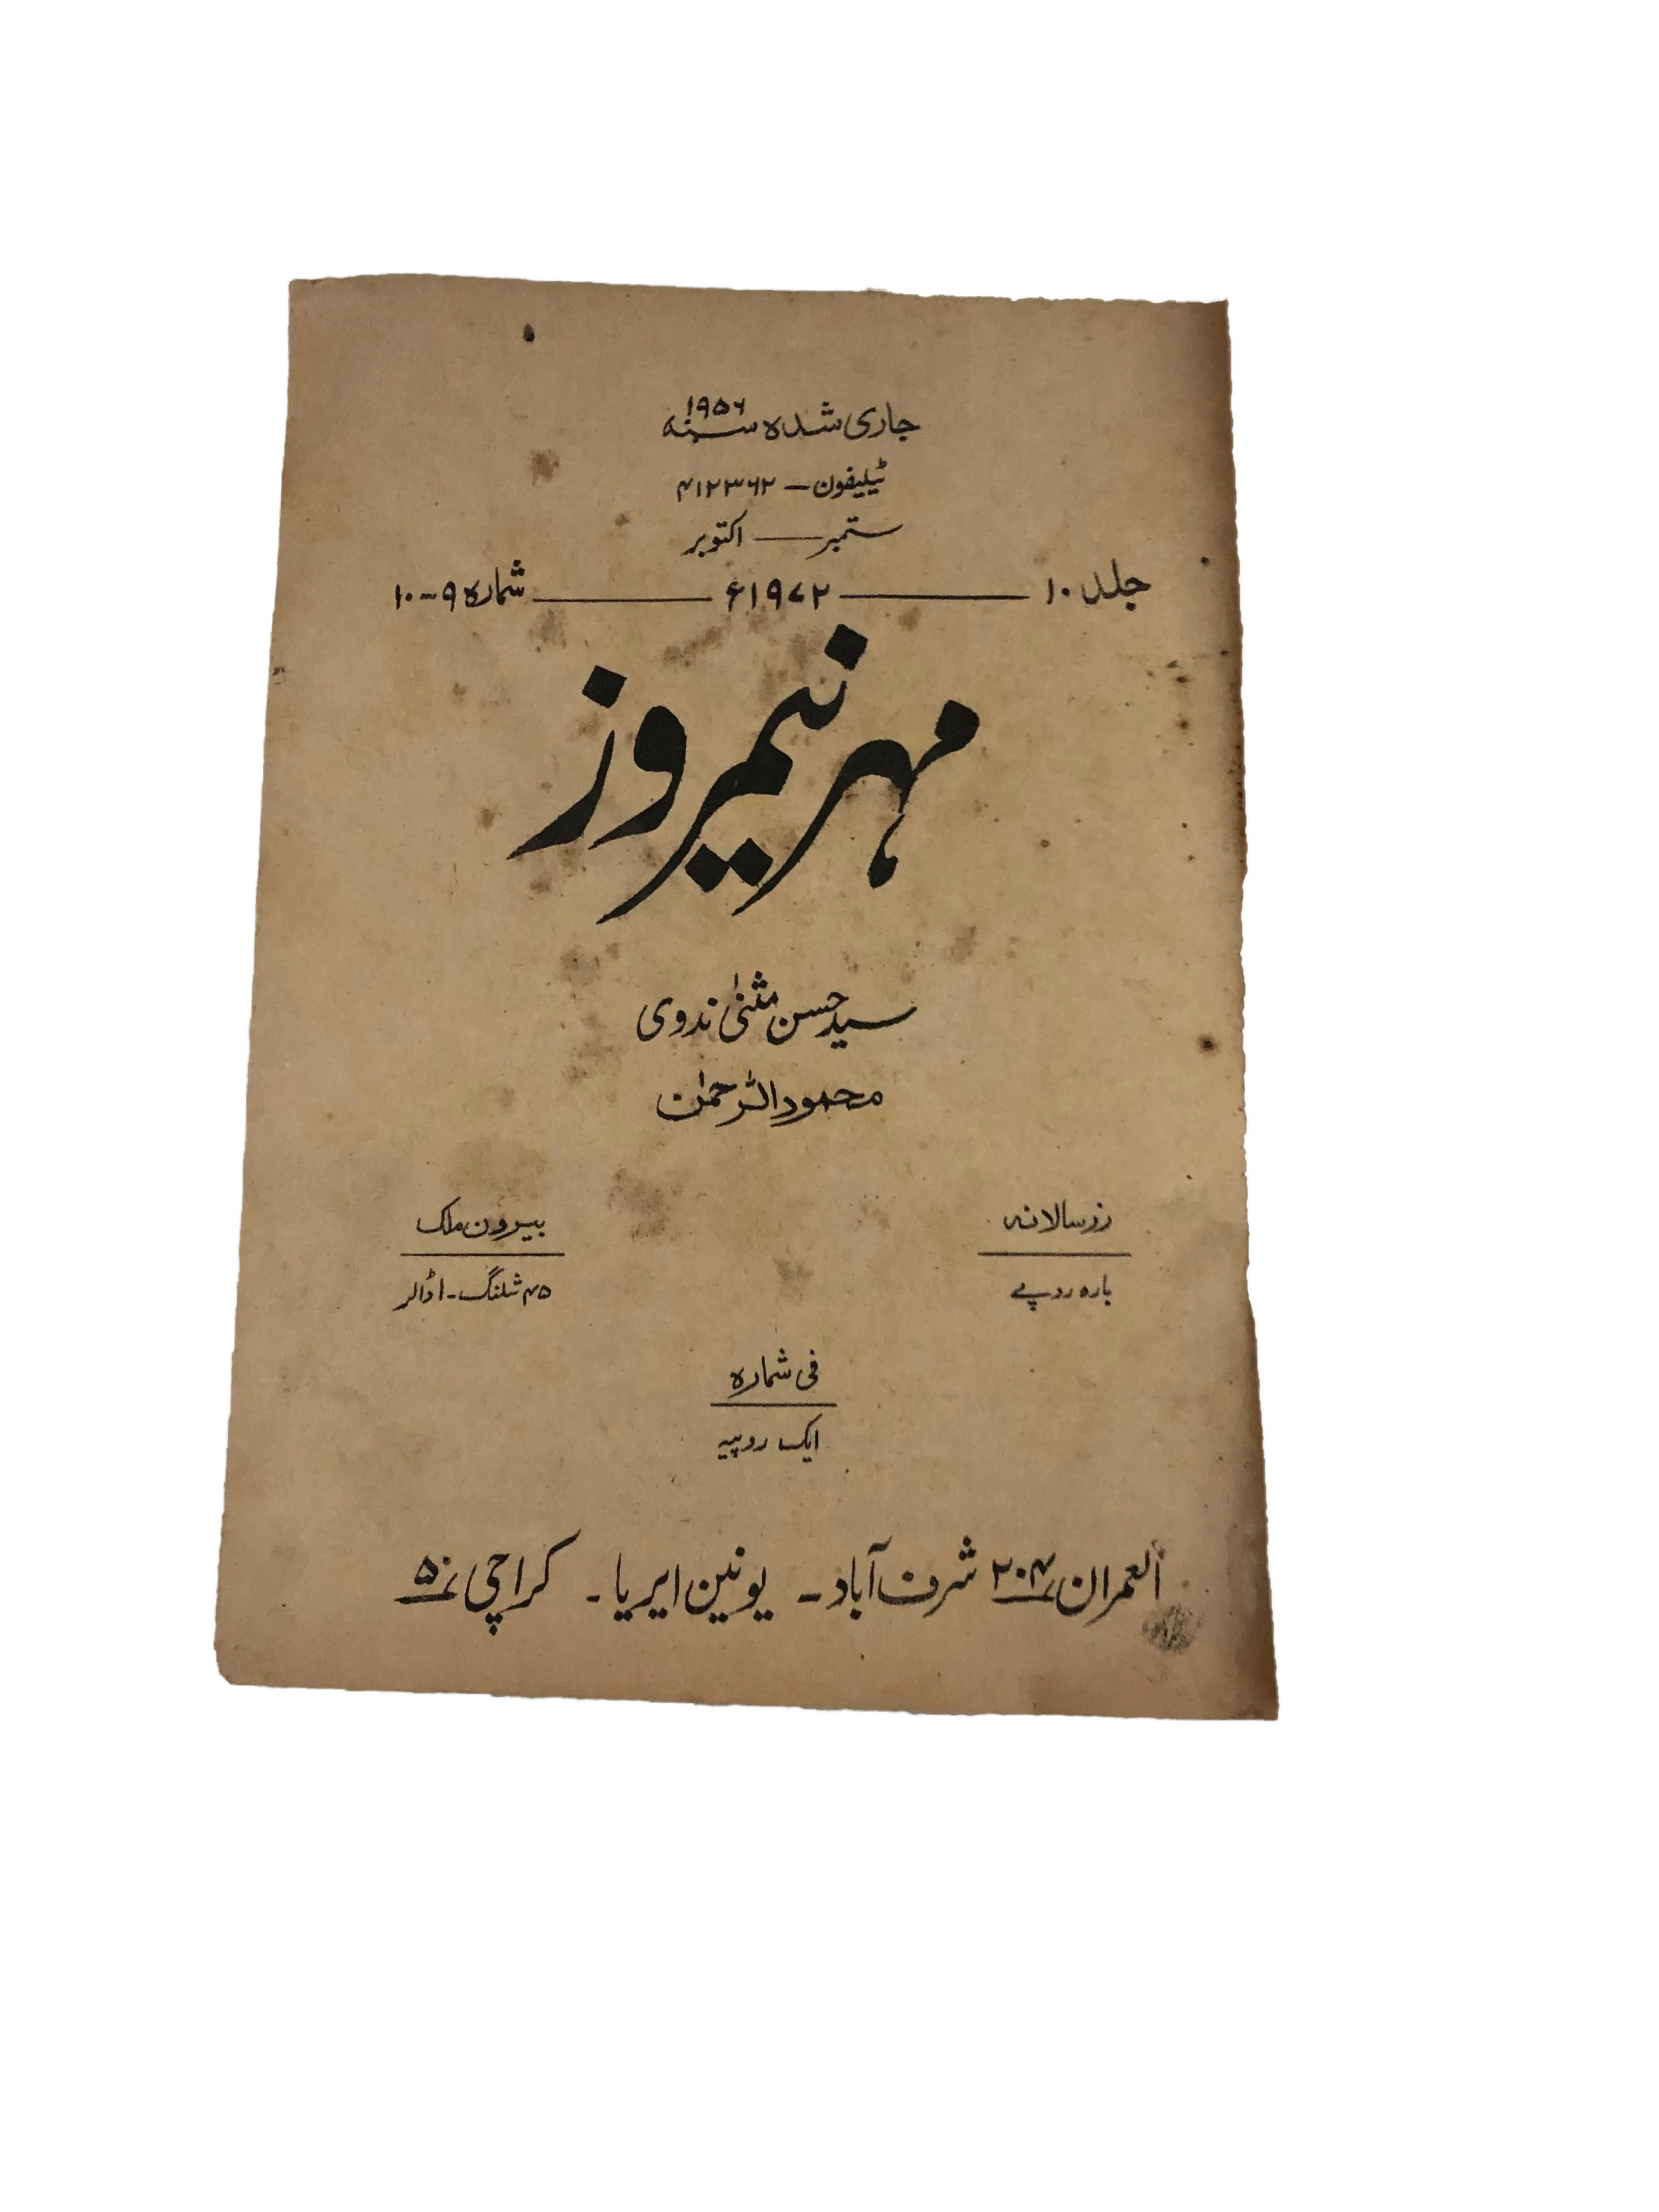 جاری شدہ سنہ ۱۹۵۶
ٹیلیفون – ۴۱۲۳۶۲
ستمبر — اکتوبر
جلد ۱۰ — ۱۹۷۲ء — شمارہ ۹-۱۰
مہر نیمروز
سید حسن مثنیٰ ندوی
محمود الرحمٰن
زر سالانہ
بارہ روپے
بیرون ملک
۴۵ شلنگ - ۱ ڈالر
فی شمارہ
ایک روپیہ
العمران ۲۰۴ شرف آباد - یونین ایریا - کراچی ۵